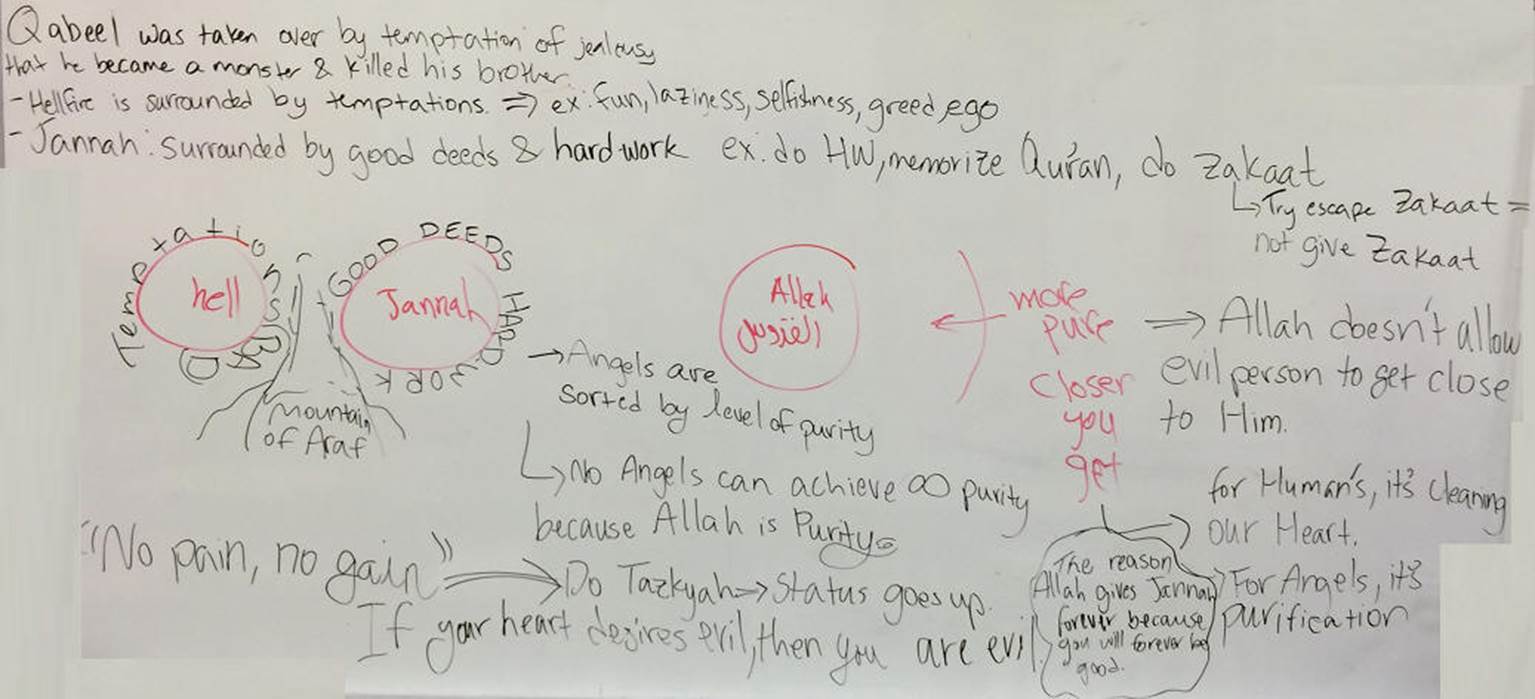 Qabeel was taken over by temptation of jealousy
that he became a monster & killed his brother.
- Hellfire is surrounded by temptations. ⇒ ex: fun, laziness, selfishness, greed, ego
- Jannah: surrounded by good deeds & hard work ex. do HW, memorize Qur'an, do Zakaat
↳ Try escape Zakaat =
not give Zakaat
Temptations BAD
hell
GOOD DEEDS HARD WORK
Jannah
Mountain
of Araf
→ Angels are
sorted by level of purity
↳ No Angels can achieve ∞ purity
because Allah is Purity
Allah
القدوس
← more
pure
closer
you
get
⇒ Allah doesn't allow
evil person to get close
to Him.
for Human's, it's cleaning
our Heart.
For Angels, it's
purification
The reason
Allah gives Jannah
forever because
you will forever be
good.
"No pain, no gain" ⇒ Do Tazkyah ⇒ Status goes up.
If your heart desires evil, then you are evil